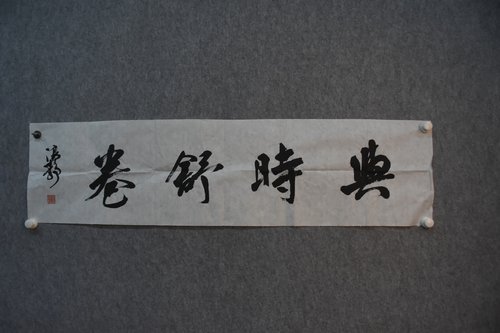 與時舒卷